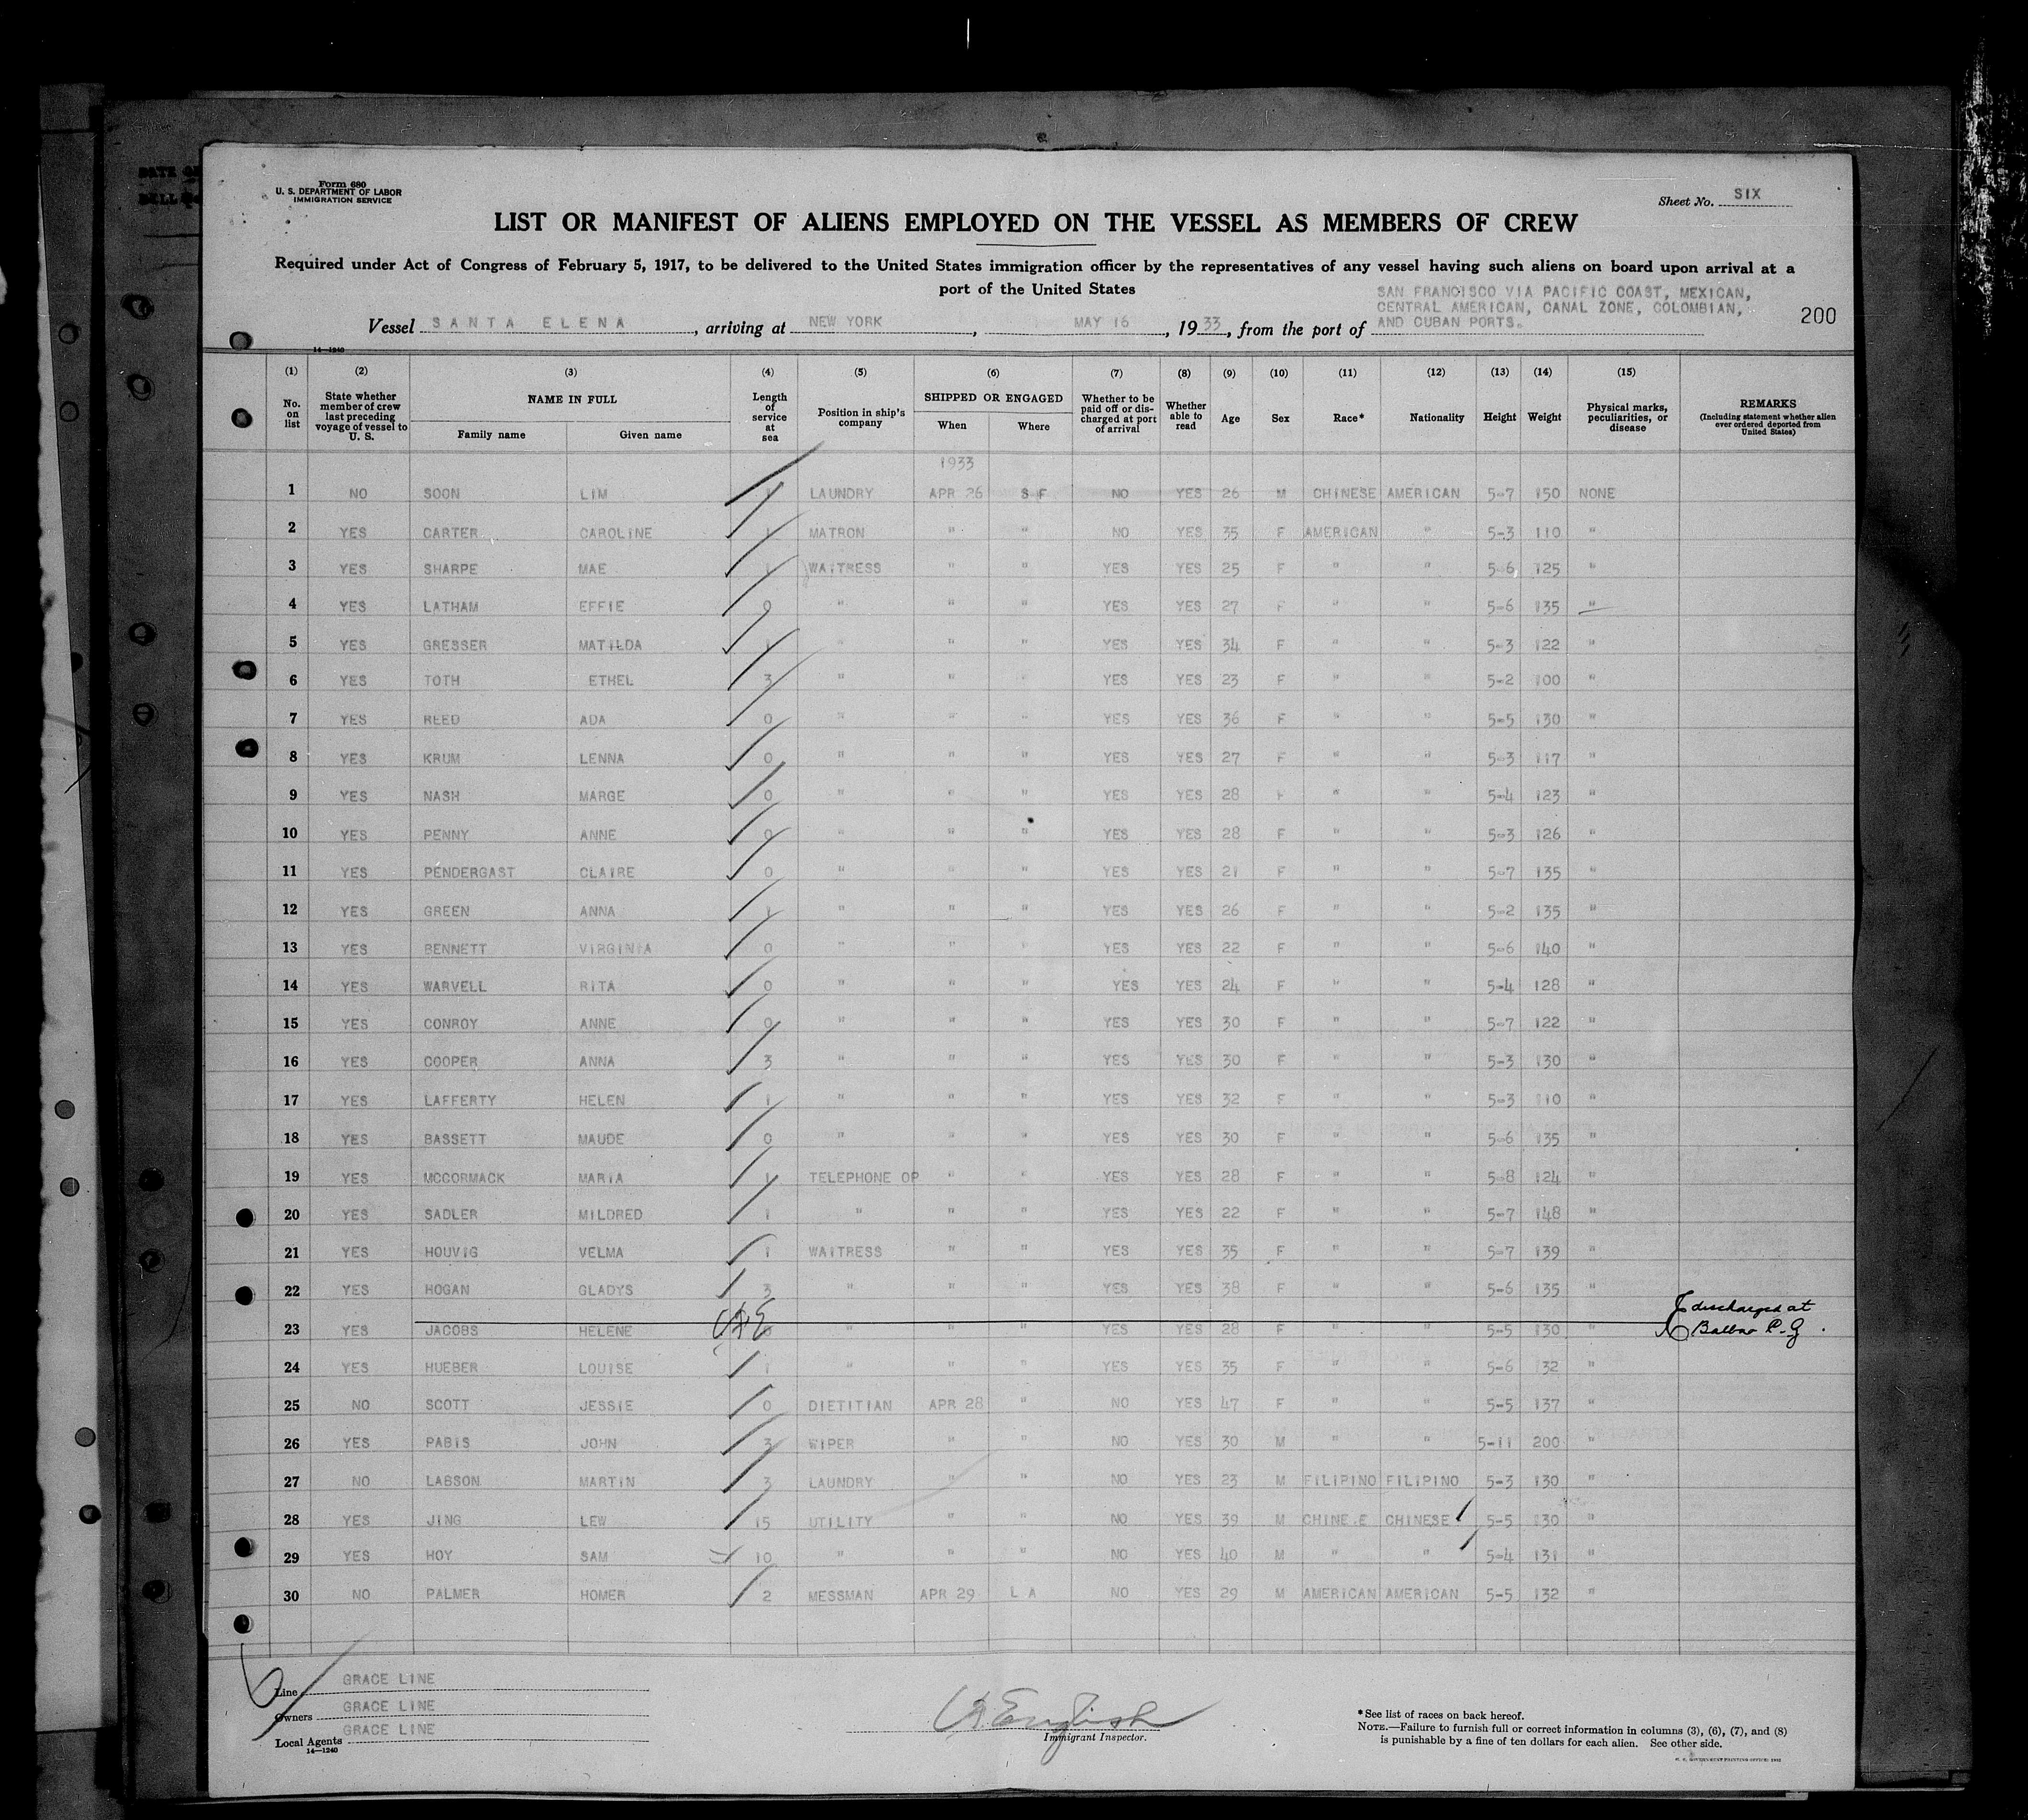 Form 680
U. S. DEPARTMENT OF LABOR
IMMIGRATION SERVICE
Sheet No. SIX
LIST OR MANIFEST OF ALIENS EMPLOYED ON THE VESSEL AS MEMBERS OF CREW
Required under Act of Congress of February 5, 1917, to be delivered to the United States immigration officer by the representatives of any vessel having such aliens on board upon arrival at a
port of the United States
SAN FRANCISCO VIA PACIFIC COAST, MEXICAN,
CENTRAL AMERICAN, CANAL ZONE, COLOMBIAN,
Vessel SANTA ELENA, arriving at NEW YORK, MAY 16, 1933, from the port of AND CUBAN PORTS. 200
14—1240
(1) (2) (3) (4) (5) (6) (7) (8) (9) (10) (11) (12) (13) (14) (15)
No. on list State whether member of crew last preceding voyage of vessel to U. S. NAME IN FULL Family name Given name Length of service at sea Position in ship's company SHIPPED OR ENGAGED When Where Whether to be paid off or discharged at port of arrival Whether able to read Age Sex Race* Nationality Height Weight Physical marks, peculiarities, or disease REMARKS (Including statement whether alien ever ordered deported from United States)
1933
1 NO SOON LIM 1 LAUNDRY APR 26 S F NO YES 26 M CHINESE AMERICAN 5-7 150 NONE
2 YES CARTER CAROLINE 1 MATRON " " NO YES 35 F AMERICAN " 5-3 110 "
3 YES SHARPE MAE 1 WAITRESS " " YES YES 25 F " " 5-6 125 "
4 YES LATHAM EFFIE 0 " " " YES YES 27 F " " 5-6 135 "
5 YES GRESSER MATILDA 1 " " " YES YES 34 F " " 5-3 122 "
6 YES TOTH ETHEL 3 " " " YES YES 23 F " " 5-2 100 "
7 YES REED ADA 0 " " " YES YES 36 F " " 5-5 130 "
8 YES KRUM LENNA 0 " " " YES YES 27 F " " 5-3 117 "
9 YES NASH MARGE 0 " " " YES YES 28 F " " 5-4 123 "
10 YES PENNY ANNE 0 " " " YES YES 28 F " " 5-3 126 "
11 YES PENDERGAST CLAIRE 0 " " " YES YES 21 F " " 5-7 135 "
12 YES GREEN ANNA 1 " " " YES YES 26 F " " 5-2 135 "
13 YES BENNETT VIRGINIA 0 " " " YES YES 22 F " " 5-6 140 "
14 YES WARVELL RITA 0 " " " YES YES 24 F " " 5-4 128 "
15 YES CONROY ANNE 0 " " " YES YES 30 F " " 5-7 122 "
16 YES COOPER ANNA 3 " " " YES YES 30 F " " 5-3 130 "
17 YES LAFFERTY HELEN 1 " " " YES YES 32 F " " 5-3 110 "
18 YES BASSETT MAUDE 0 " " " YES YES 30 F " " 5-6 135 "
19 YES MCCORMACK MARIA 1 TELEPHONE OP " " YES YES 28 F " " 5-8 124 "
20 YES SADLER MILDRED 1 " " " YES YES 22 F " " 5-7 148 "
21 YES HOUVIG VELMA 1 WAITRESS " " YES YES 35 F " " 5-7 139 "
22 YES HOGAN GLADYS 3 " " " YES YES 38 F " " 5-6 135 "
23 YES JACOBS HELENE 0 " " " YES YES 28 F " " 5-5 130 " discharged at Balboa
24 YES HUEBER LOUISE 1 " " " YES YES 35 F " " 5-6 132 "
25 NO SCOTT JESSIE 0 DIETITIAN APR 28 " NO YES 47 F " " 5-5 137 "
26 YES PABIS JOHN 3 WIPER " " NO YES 30 M " " 5-11 200 "
27 NO LABSON MARTIN 3 LAUNDRY " " NO YES 23 M FILIPINO FILIPINO 5-3 130 "
28 YES JING LEW 15 UTILITY " " NO YES 39 M CHINE.E CHINESE 5-5 130 "
29 YES HOY SAM 10 " " " NO YES 40 M " " 5-4 131 "
30 NO PALMER HOMER 2 MESSMAN APR 29 L A NO YES 29 M AMERICAN AMERICAN 5-5 132 "
Line GRACE LINE
Owners GRACE LINE
Local Agents GRACE LINE
14—1240
English
Immigrant Inspector.
*See list of races on back hereof.
NOTE.—Failure to furnish full or correct information in columns (3), (6), (7), and (8)
is punishable by a fine of ten dollars for each alien. See other side.